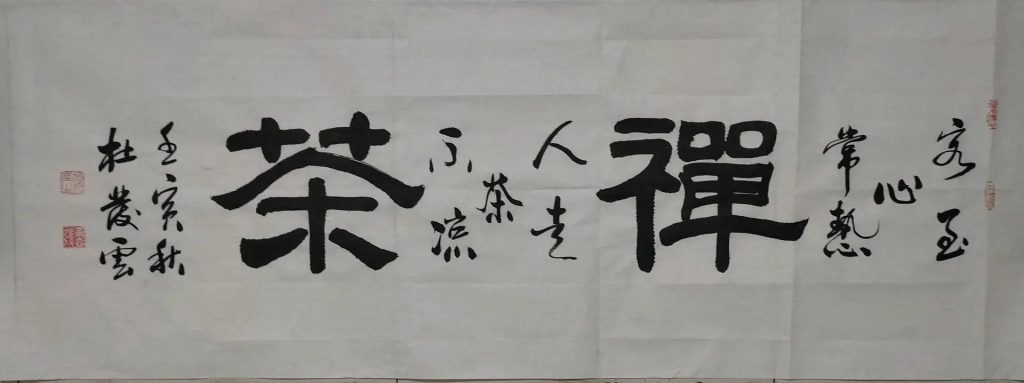 客至
心
常熱
禪
人走
茶
不凉
茶
壬寅秋
杜發雲